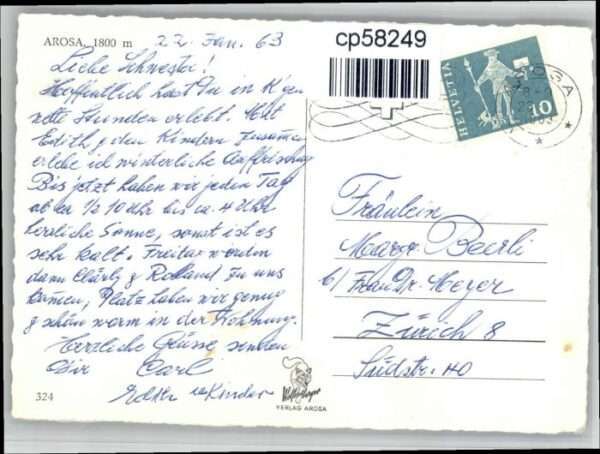 AROSA, 1800 m
22. Jan. 63
cp58249
HELVETIA
10
AROSA
Liebe Schwester!
Hoffentlich hast Du in K'gen
nette Stunden erlebt. Mit
Edith & den Kindern zusammen
erlebe ich winterliche Auffrischung
Bis jetzt haben wir jeden Tag
ab ca. ½ 10 Uhr bis ca. 4 Uhr
herrliche Sonne, sonst ist es
sehr kalt. Freitag werden
dann & Roland zu uns
kommen, Platz haben wir genug
& schön warm in der Wohnung.
Herzliche Grüsse senden
Dir Carl
Edith u Kinder
Fräulein
Margr. Beerli
b/ Frau Dr. Meyer
Zürich 8
Südstr. 40
324
VERLAG AROSA